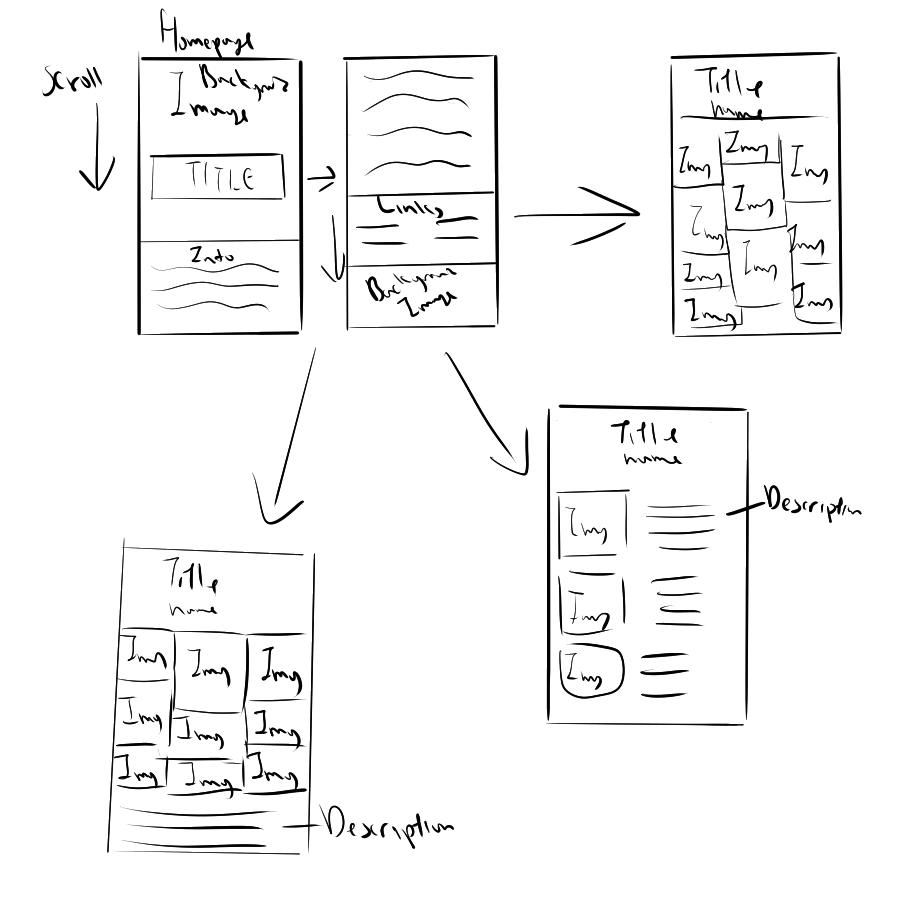 Homepage
Scroll
Background
Image
TITLE
Info
Links
Background
Image
Title
name
Img
Img
Img
Img
Img
Img
Img
Img
Img
Img
Img
Title
name
Img
Img
Img
Description
Title
name
Img
Img
Img
Img
Img
Img
Img
Img
Img
Description